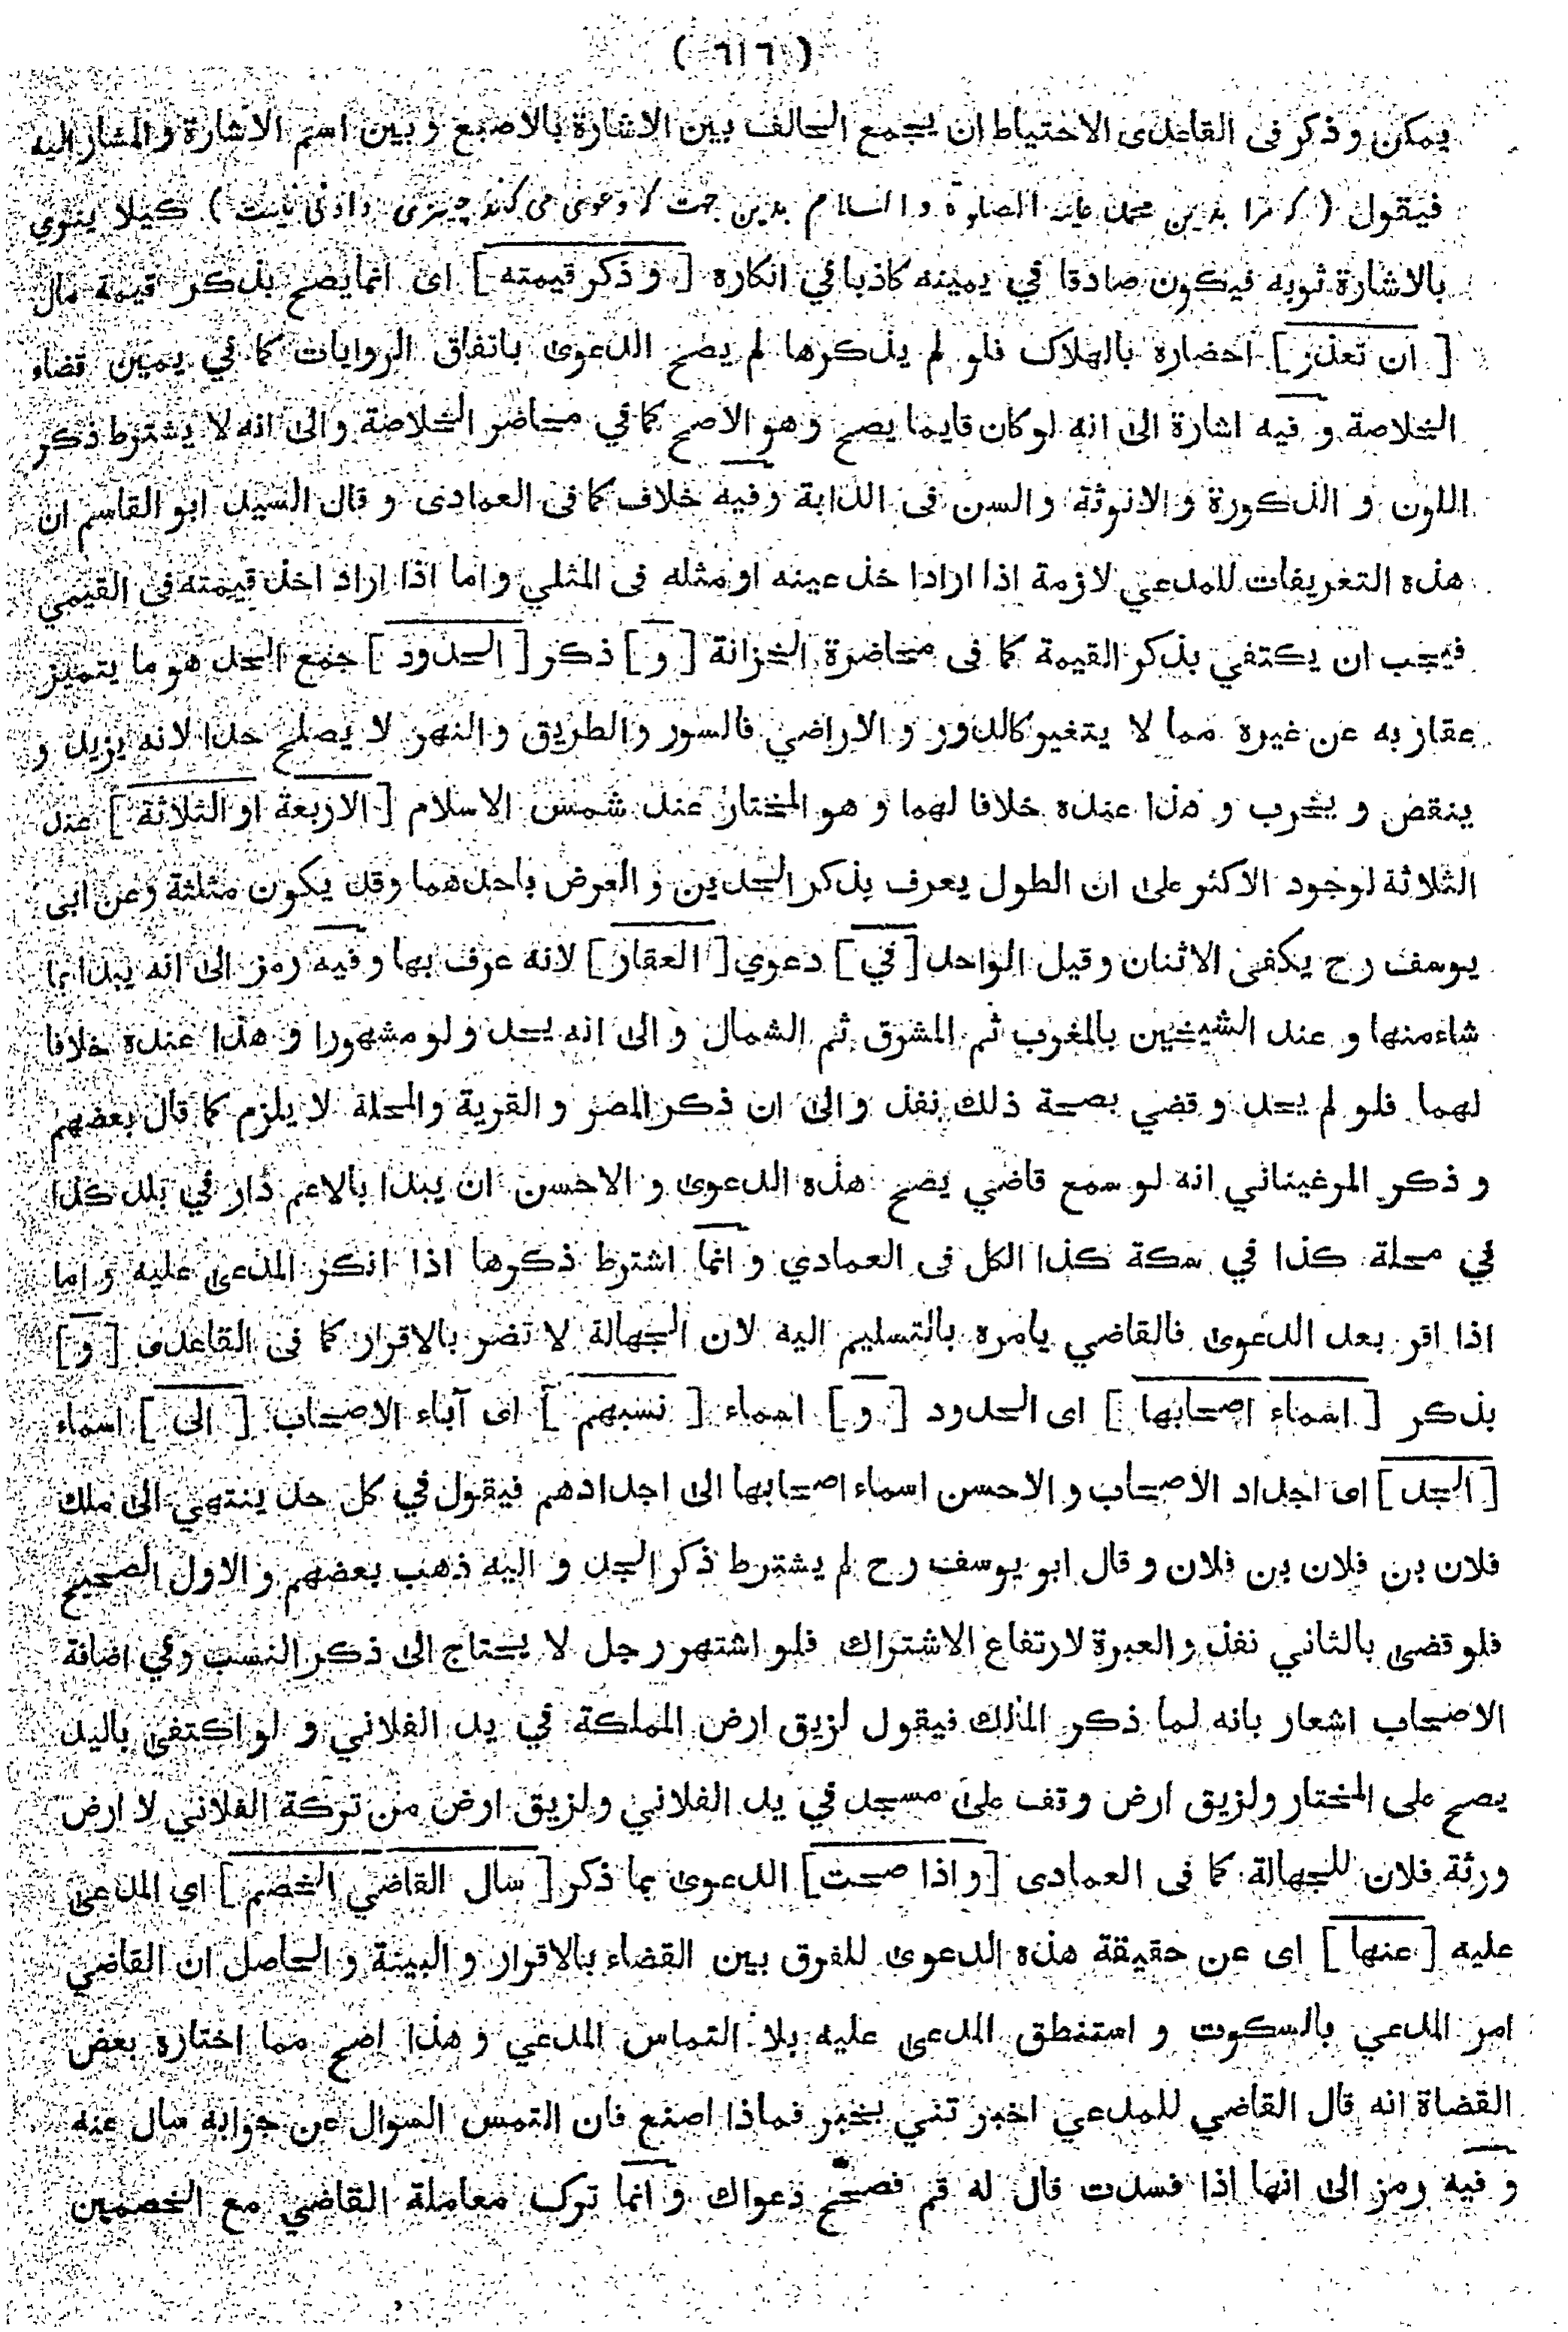 ( ٦١٦ )
يمكن و ذكر فى القاعدى الاحتياط ان يجمع الحالف بين الاشارة بالاصبع و بين اسم الاشارة و المشار اليه
فيقول ( كه مرا بدين محمد عليه الصلوة و السلام بدين جهت كه دعوى مى كند چيزى دادنى نيست ) كيلا ينوي
بالاشارة ثوبه فيكون صادقا في يمينه كاذبا في انكاره [ و ذكر قيمته ] اى انما يصح بذكر قيمة مال
[ ان تعذر ] احضاره بالهلاك فلو لم يذكرها لم يصح الدعوى باتفاق الروايات كما في يمين قضاء
الخلاصة و فيه اشارة الى انه لو كان قايما يصح و هو الاصح كما في محاضر الخلاصة و الى انه لا يشترط ذكر
اللون و الذكورة و الانوثة و السن فى الدابة و فيه خلاف كما فى العمادى و قال السيد ابو القاسم ان
هذه التعريفات للمدعي لازمة اذا ارادا خذ عينه او مثله فى المثلي و اما اذا اراد اخذ قيمته فى القيمي
فيجب ان يكتفي بذكر القيمة كما فى محاضرة الخزانة [ و ] ذكر [ الحدود ] جمع الحد هو ما يتميز
عقار به عن غيره مما لا يتغير كالدور و الاراضي فالسور و الطريق و النهر لا يصلح حدا لانه يزيد و
ينقص و يخرب و هذا عنده خلافا لهما و هو المختار عند شمس الاسلام [ الاربعة او الثلاثة ] عند
الثلاثة لوجود الاكثر على ان الطول يعرف بذكر الحدين و العرض باحدهما و قد يكون مثلثة و عن ابى
يوسف رح يكفى الاثنان و قيل الواحد [ في ] دعوي [ العقار ] لانه عرف بها و فيه رمز الى انه يبدا بما
شاء منها و عند الشيخين بالمغرب ثم المشرق ثم الشمال و الى انه يحد و لو مشهورا و هذا عنده خلافا
لهما فلو لم يحد و قضي بصحة ذلك نفذ و الى ان ذكر المصر و القرية و المحلة لا يلزم كما قال بعضهم
و ذكر المرغيناني انه لو سمع قاضي يصح هذه الدعوى و الاحسن ان يبدا بالاعم دار في بلد كذا
في محلة كذا في سكة كذا الكل فى العمادي و انما اشترط ذكرها اذا انكر المدعى عليه و اما
اذا اقر بعد الدعوى فالقاضي يامره بالتسليم اليه لان الجهالة لا تضر بالاقرار كما فى القاعدى [ و ]
بذكر [ اسماء اصحابها ] اى الحدود [ و ] اسماء [ نسبهم ] اى آباء الاصحاب [ الى ] اسماء
[ الجد ] اى اجداد الاصحاب و الاحسن اسماء اصحابها الى اجدادهم فيقول في كل حد ينتهي الى ملك
فلان بن فلان بن فلان و قال ابو يوسف رح لم يشترط ذكر الجد و اليه ذهب بعضهم و الاول الصحيح
فلو قضى بالثاني نفذ و العبرة لارتفاع الاشتراك فلو اشتهر رجل لا يحتاج الى ذكر النسب و في اضافة
الاصحاب اشعار بانه لما ذكر المالك فيقول لزيق ارض المملكة في يد الفلاني و لو اكتفى باليد
يصح على المختار و لزيق ارض وقف على مسجد في يد الفلاني و لزيق ارض من تركة الفلاني لا ارض
ورثة فلان للجهالة كما فى العمادى [ و اذا صحت ] الدعوى بما ذكر [ سال القاضي الخصم ] اي المدعى
عليه [ عنها ] اى عن حقيقة هذه الدعوى للفرق بين القضاء بالاقرار و البينة و الحاصل ان القاضي
امر المدعي بالسكوت و استنطق المدعى عليه بلا التماس المدعي و هذا اصح مما اختاره بعض
القضاة انه قال القاضي للمدعي اخبر تني بخبر فماذا اصنع فان التمس السوال عن جوابه سال عنه
و فيه رمز الى انها اذا فسدت قال له قم فصحح دعواك و انما ترك معاملة القاضي مع الخصمين